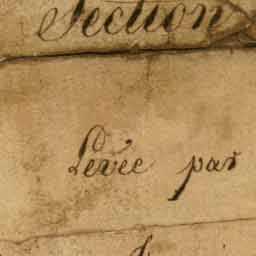 Section
Levée par